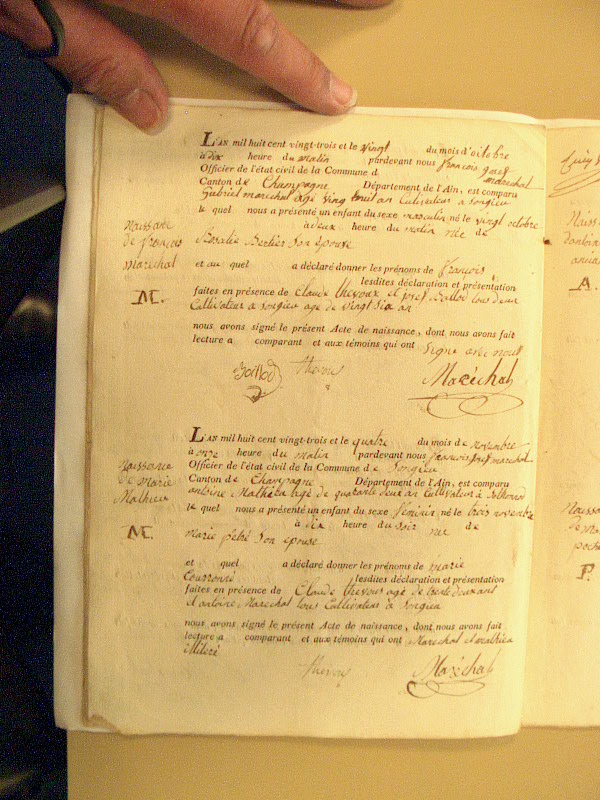 L'AN mil huit cent vingt-trois et le vingt du mois d'octobre
à dix heure du matin pardevant nous françois josef marechal
Officier de l'état civil de la Commune d
Canton de Champagne Département de l'Ain, est comparu
Gabriel marechal agé ving huit an Cultivateur a Songieu
le quel nous a présenté un enfant du sexe masculin né le vingt octobre
à deux heure du matin née de
Rosalie Bertier Son épouse
et au quel a déclaré donner les prénoms de françois
lesdites déclaration et présentation
faites en présence de Claude thevoux et josef Ballod tous deux
Cultivateur a songieu age de vingt Six an
nous avons signé le présent Acte de naissance, dont nous avons fait
lecture a comparant et aux témoins qui ont Signe avec nous
Ballod thevoux Maréchal
Naissance
de françois
Marechal
M.
L'AN mil huit cent vingt-trois et le quatre du mois de novembre
à onze heure du matin pardevant nous françois josef marechal
Officier de l'état civil de la Commune de Songieu
Canton de Champagne Département de l'Ain, est comparu
antoine Mathieu agé de quarante deux an Cultivateur à
le quel nous a présenté un enfant du sexe féminin né le trois novembre
à dix heure du soir née de
Marie Son épouse
et quel a déclaré donner les prénoms de marie
lesdites déclaration et présentation
faites en présence de Claude thevoux agé de trente deux ant
et antoine Marechal tous Cultivateur à Songieu
nous avons signé le présent Acte de naissance, dont nous avons fait
lecture a comparant et aux témoins qui ont Marechal et mathieu
illitéré
thevoux Maréchal
Naissance
de Marie
Mathieu
M.
A.
P.